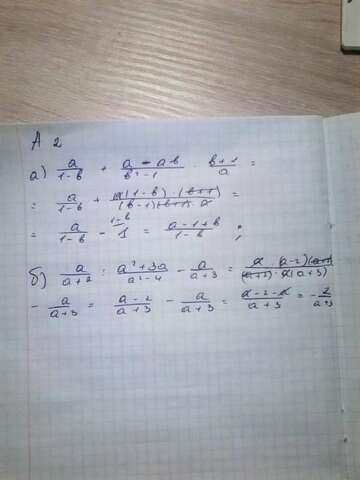 А 2
а) a/(1-в) + (a - aв)/(в²-1) · (в+1)/a =
= a/(1-в) + (a(1-в)·(в+1))/((в-1)(в+1)·a) =
= a/(1-в) - 1^(1-в) = (a-1+в)/(1-в) ;
б) a/(a+2) : (a²+3a)/(a²-4) - a/(a+3) = (a·(a-2)(a+2))/((a+2)·a(a+3))
- a/(a+3) = (a-2)/(a+3) - a/(a+3) = (a-2-a)/(a+3) = -2/(a+3)